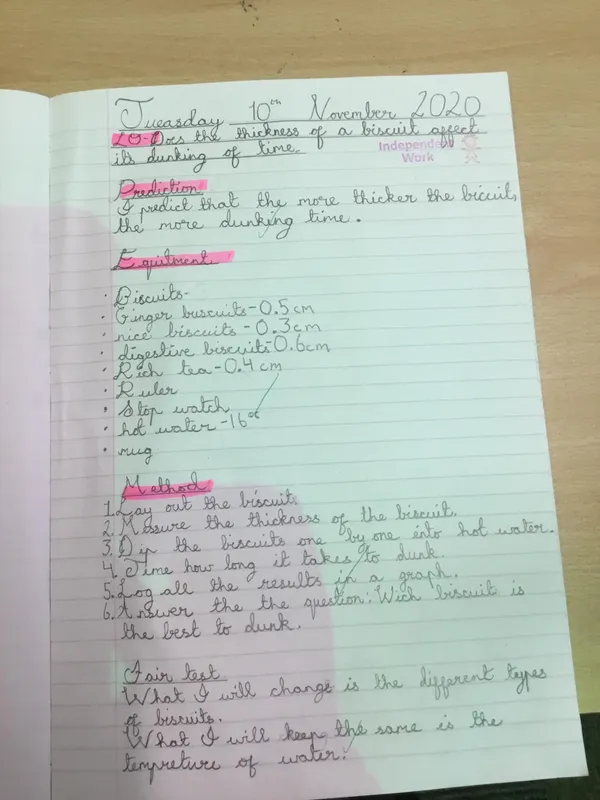 Tueasday 10th November 2020
LO-Does the thickness of a biscuit affect
its dunking of time.
Independent
Work
Prediction
I predict that the more thicker the biccuit,
the more dunking time.
Equitment
· Biscuits-
· Ginger buscuits-0.5cm
· nice biscuits-0.3cm
· digestive biscuits-0.6cm
· Rich tea-0.4cm
· Ruler
· Stop watch
· hot water-16°c
· mug
Method
1. Lay out the biscuit.
2. Messure the thickness of the biscuit.
3. Dip the biscuits one by one into hot water.
4. Time how long it takes to dunk.
5. Log all the results in a graph.
6. Answer the the question: Wich biscuit is
the best to dunk.
Fair test
What I will change is the different types
of biscuits.
What I will keep the same is the
tempreture of water.